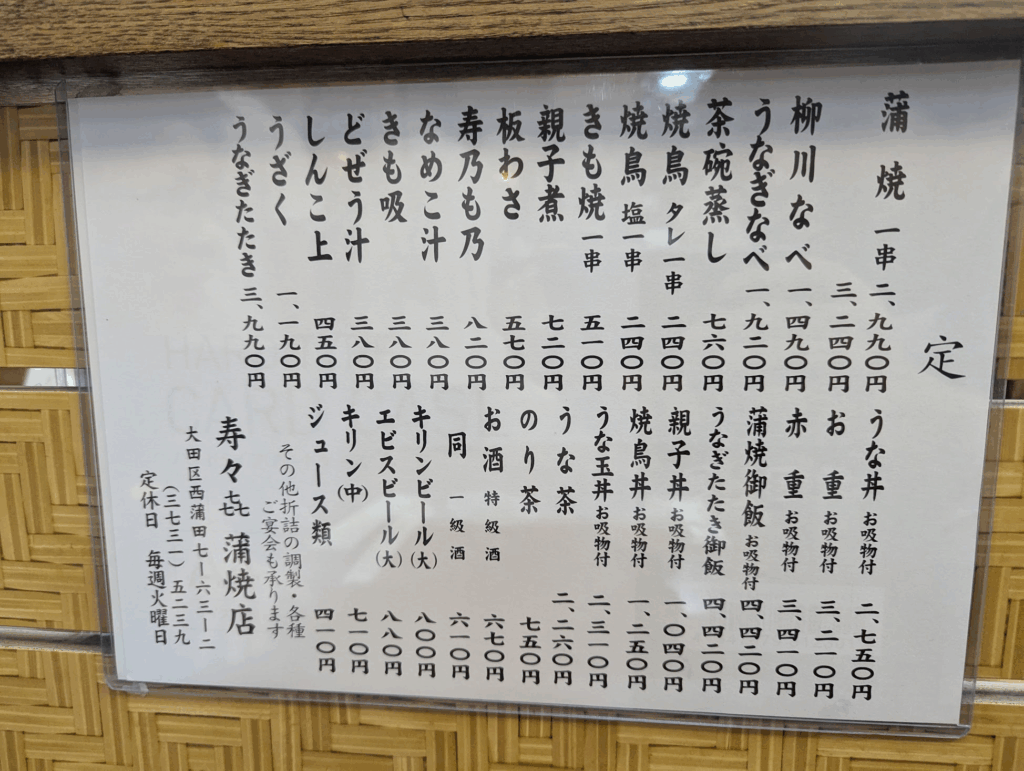 定
蒲焼 一串 二、九九〇円
三、二四〇円
柳川なべ 一、四九〇円
うなぎなべ 一、九二〇円
茶碗蒸し 七六〇円
焼鳥 タレ一串 二四〇円
焼鳥 塩一串 二四〇円
きも焼 一串 五一〇円
親子煮 七二〇円
板わさ 五七〇円
寿乃も乃 八二〇円
なめこ汁 三八〇円
きも吸 三八〇円
どぜう汁 三八〇円
しんこ上 四五〇円
うざく 一、一九〇円
うなぎたたき 三、九九〇円
うな丼 お吸物付 二、七五〇円
お重 お吸物付 三、二一〇円
赤重 お吸物付 三、四一〇円
蒲焼御飯 お吸物付 四、四二〇円
うなぎたたき御飯 四、四二〇円
親子丼 お吸物付 一、〇四〇円
焼鳥丼 お吸物付 一、二五〇円
うな玉丼 お吸物付 二、三一〇円
うな茶 二、二六〇円
のり茶 七五〇円
お酒 特級酒 六七〇円
同 一級酒 六一〇円
キリンビール(大) 八〇〇円
エビスビール(大) 八八〇円
キリン(中) 七一〇円
ジュース類 四一〇円
その他折詰の調製・各種
ご宴会も承ります
寿々㐂 蒲焼店
大田区西蒲田七ー六三ー二
(三七三一)五二三九
定休日 毎週火曜日